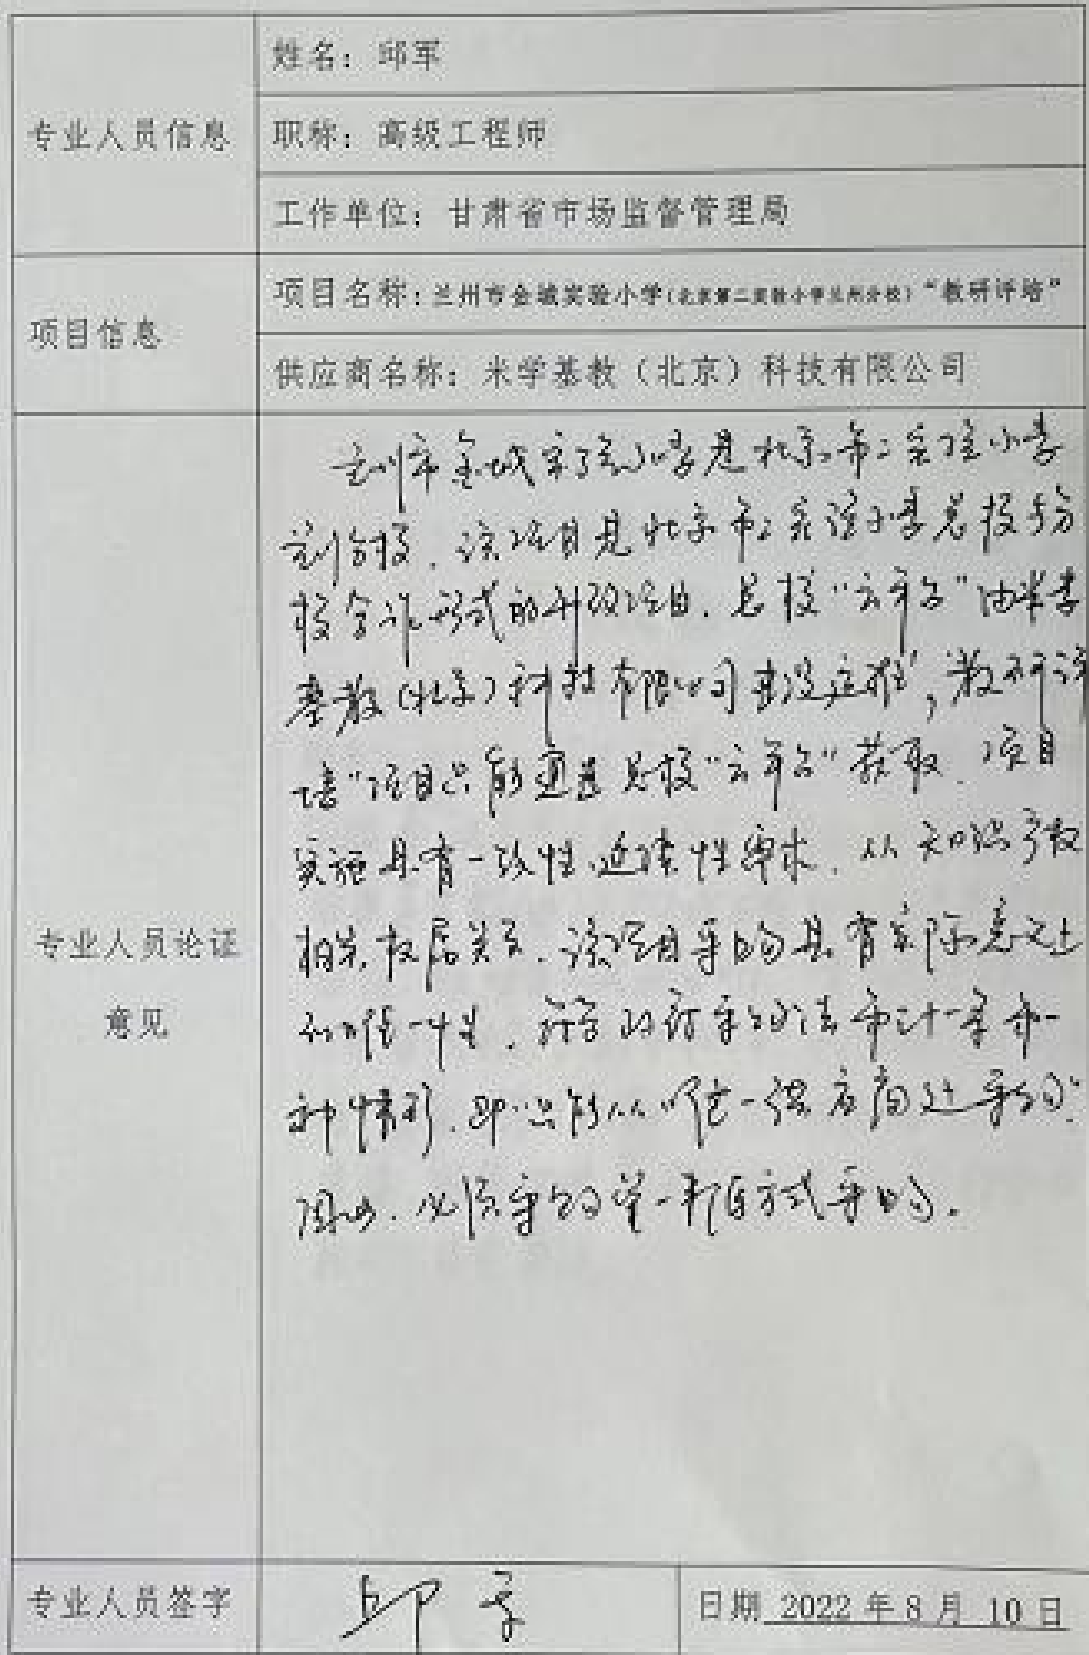 专业人员信息
姓名：邱军
职称：高级工程师
工作单位：甘肃省市场监督管理局
项目信息
项目名称：兰州市金城实验小学（北京第二实验小学兰州分校）“教研评培”
供应商名称：米学基教（北京）科技有限公司
专业人员论证
意见
兰州市金城实验小学是北京市二实验小学
兰州分校，该项目是北京市二实验小学总校与分
校合作形式的项目，总校“云平台”由米学
基教（北京）科技有限公司建设，“教研评
培”项目只能通过总校“云平台”获取，项目
实施具有一致性延续性要求，从知识产权
相关权属关系，该项目采购具有实际意义上
的唯一性，符合政府采购法第三十一条第一
种情形，即“只能从唯一供应商处采购”
因此，必须采购单一来源方式采购。
专业人员签字
邱军
日期 2022 年 8 月 10 日